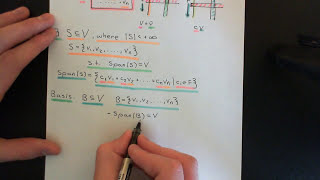 V = D
SK
∃ S⊆V, where |S| < +∞
S = {v₁, v₂, ..., vₙ}
s.t. Span(S) = V
Span(S) = {c₁v₁ + c₂v₂ + ... + cₙvₙ | cᵢ ∈ F}
Basis: B⊆V B = {v₁, v₂, ..., vₙ}
- Span(B) = V